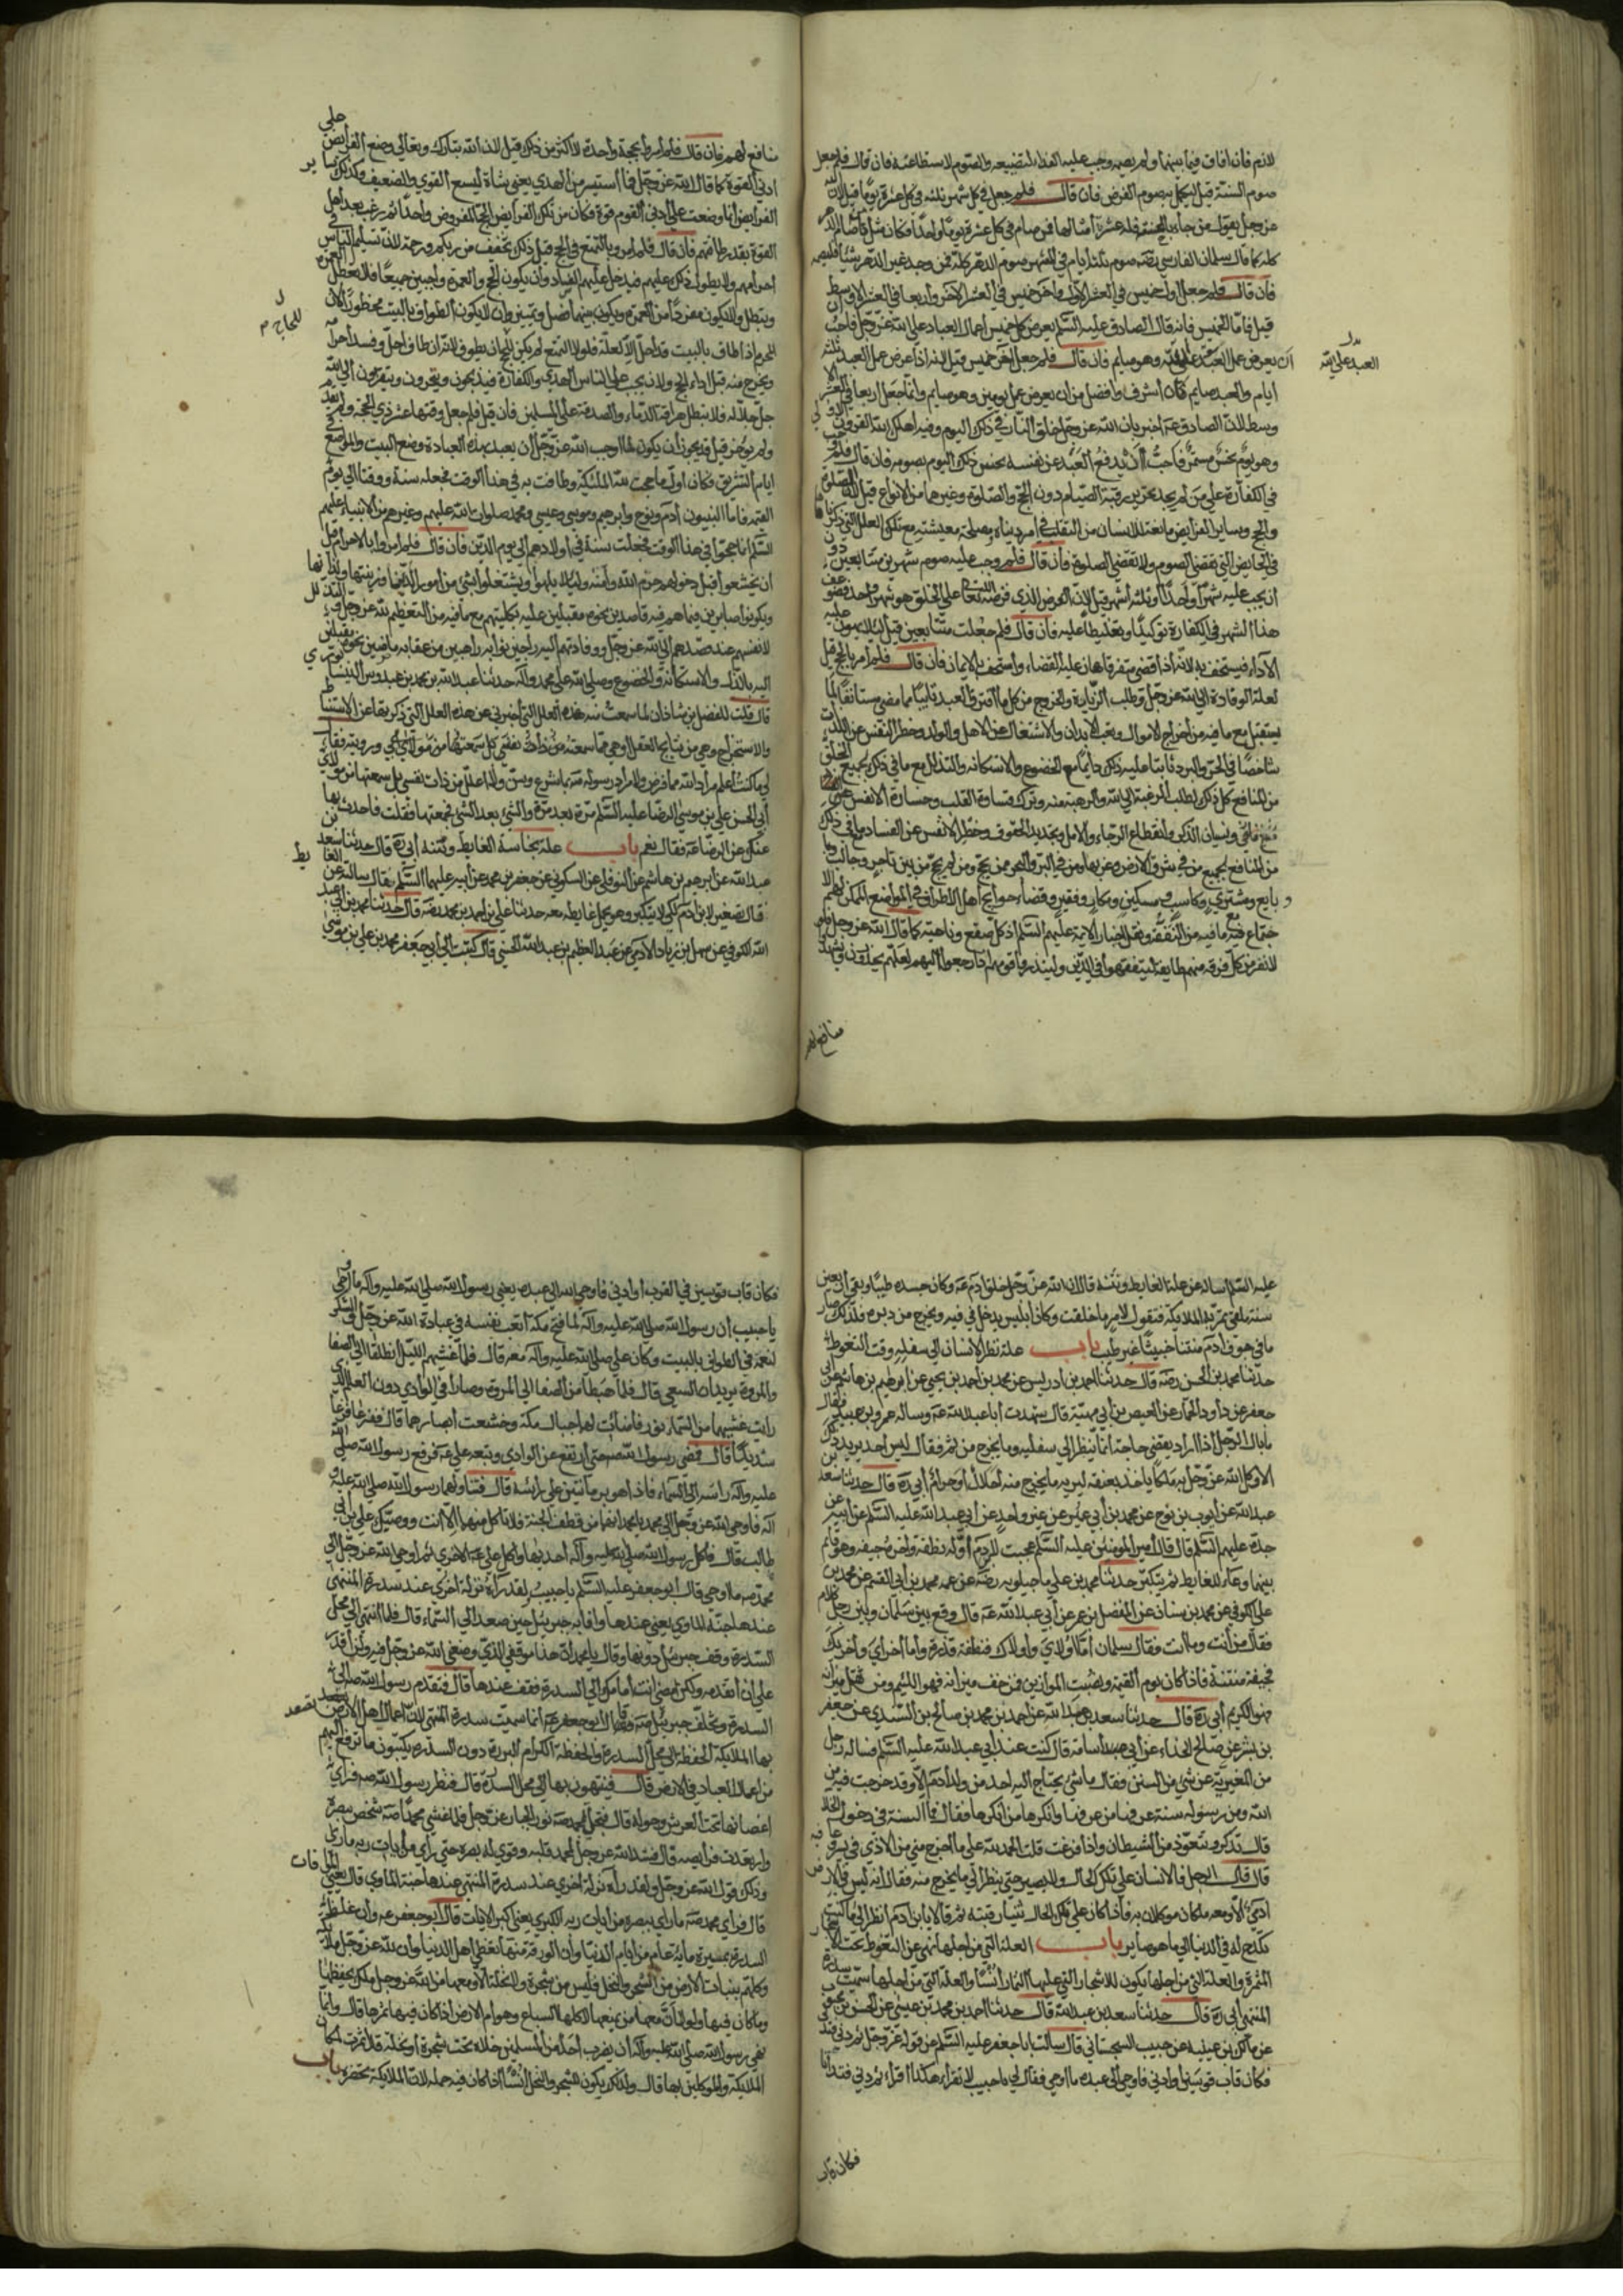 لازم فان افاق فيما بينهما ولم يصمه وجب عليه الفداء لتضييعه والصوم لاستطاعته فان قال فلم جعل
صوم السنة قيل ليكمل به صوم الفرض فان قال فلم جعل في كل شهر ثلثة في كل عشرة يوما قيل لان الله
عز وجل يقول من جاء بالحسنة فله عشر امثالها فمن صام في كل عشرة يوما واحدا فكانما صام الدهر
كله كما قال سلمان الفارسي رضه صوم ثلثة ايام في الشهر صوم الدهر كله فمن وجد غير الدهر شيئا فليصمه
فان قال فلم جعل اول خميس في العشر الاول واخر خميس في العشر الاخر واربعا في العشر الاوسط
قيل فاما الخميس فانه قال الصادق عليه السلم يعرض كل خميس اعمال العباد على الله عز وجل فاحب
ان يعرض عمل العبد على الله وهو صايم فان قال فلم جعل اخر خميس قيل لانه اذا عرض عمل العبد ثلثة
العبد على الله
ايام والعبد صايم كان اشرف وافضل من ان يعرض عمل يومين وهو صايم وانما جعل اربعا في العشر
وسط لان الصادق ع اخبر بان الله عز وجل خلق النار في ذلك اليوم وفيه اهلك الله القرون
وهو يوم نحس مستمر فاحب ان يدفع العبد عن نفسه نحس ذلك اليوم بصومه فان قال فلم
في الكفارة على من لم يجد تحرير رقبة الصيام دون الحج والصلوة وغيرها من الانواع قيل لان الصلوة
والحج وساير الفرايض مانعة للانسان من التقلب في امر دنياه ومصلحة معيشته مع تلك العلل التي ذكرناها
في الحايض التي تقضي الصوم ولا تقضي الصلوة فان قال فلم وجب عليه صوم شهرين متتابعين دون
ان يجب عليه شهرا واحدا او ثلثة اشهر قيل لان الفرض الذي فرضه الله تعا على الخلق هو شهر واحد فضوعف
هذا الشهر في الكفارة توكيدا وتغليظا عليه فان قال فلم جعلت متتابعين قيل لئلا يهون عليه
الاداء فيستخف به لانه اذا قضى متفرقا هان عليه القضاء واستخف بالايمان فان قال فلم امر بالحج قيل
لعلة الوفادة الى الله عز وجل وطلب الزيارة والخروج من كل ما اقترف العبد تايبا مما مضى مستانفا لما
يستقبل مع ما فيه من اخراج الاموال وتعب الابدان والاشتغال عن الاهل والولد وحظر النفس عن اللذات
شاخصا في الحر والبرد ثابتا عليه ذلك دايما مع الخضوع والاستكانة والتذلل مع ما في ذلك لجميع الخلق
من المنافع كل ذلك لطلب الرغبة الى الله والرهبة منه وترك قساوة القلب وخسارة الانفس
ونسيان الذكر وانقطاع الرجاء والامل وتجديد الحقوق وحظر الانفس عن الفساد مع ما في ذلك
من المنافع لجميع من في شرق الارض وغربها ومن في البر والبحر ممن يحج ومن لم يحج من بين تاجر وجالب
و بايع ومشتري وكاسب ومسكين ومكار وفقير وقضاء حوايج اهل الاطراف في المواضع الممكن لهم الا
جتماع فيه مع ما فيه من التفقه ونقل اخبار الايمة عليهم السلم الى كل صقع وناحية كما قال الله عز وجل فلو
لا نفر من كل فرقة منهم طايفة ليتفقهوا في الدين ولينذروا قومهم اذا رجعوا اليهم لعلهم يحذرون وليشهدوا
منافع لهم
منافع لهم فان قال فلم امروا بحجة واحدة لا اكثر من ذلك قيل لان الله تبارك وتعالى وضع الفرايض على
ادنى القوة كما قال الله عز وجل فما استيسر من الهدي يعني شاة ليسع القوي والضعيف وكذلك ساير
الفرايض انما وضعت على ادنى القوم قوة فكان من تلك الفرايض الحج المفروض واحدا ثم رغب بعد اهل
القوة بقدر طاقتهم فان قال فلم امروا بالتمتع في الحج قيل ذلك تخفيف من ربكم ورحمة لان تسلم الناس في
احرامهم ولا يطول ذلك عليهم فيدخل عليهم الفساد وان يكون الحج والعمرة واجبين جميعا فلا تعطل العمرة
وتبطل ولا يكون مفردا من العمرة ويكون بينهما فصل وتمييز وان لا يكون الطواف بالبيت محظورا لان
للحاج م
المحرم اذا طاف بالبيت قد احل الا لعلة فلولا التمتع لم يكن للحاج ان يطوف لانه ان طاف احل وفسد احرامه
ويخرج منه قبل اداء الحج ولان يجب على الناس الهدي والكفارة فيذبحون وينحرون ويتقربون الى الله
جل جلاله فلا تبطل هراقة الدماء والصدقة على المسلمين فان قيل فلم جعل وقتها عشر ذي الحجة ولم يقدم
ولم يؤخر قيل قد يجوز ان يكون لما اوجب الله عز وجل ان يعبد بهذه العبادة وضع البيت والمواضع
ايام التشريق فكان اول ما حجت لله الملئكة وطافت به في هذا الوقت فجعله سنة ووقتا الى يوم
القيمة فاما النبيون ادم ونوح وابرهيم وموسى وعيسى ومحمد صلوات الله عليهم وغيرهم من الانبياء عليهم
السلم انما حجوا في هذا الوقت فجعلت سنة في اولادهم الى يوم الدين فان قال فلم امروا بالاحرام قيل
ان يخشعوا قبل دخولهم حرم الله وامنه ولئلا يلهوا ويشتغلوا بشئ من امور الدنيا وزينتها ولذاتها
ويكونوا صابرين فيما هم فيه قاصدين نحوه مقبلين عليه بكليتهم مع ما فيه من التعظيم لله عز وجل والتذلل
لانفسهم عند قصدهم الى الله عز وجل ووفادتهم اليه راجين ثوابه راهبين من عقابه ماضين نحوه مقبلين
اليه بالذل والاستكانة والخضوع وصلى الله على محمد واله حدثنا عبد الله بن محمد بن عبدوس النيسابوري
قال قلت للفضل بن شاذان لما سمعت منه هذه العلل التي اخبرني عن هذه العلل التي ذكرتها عن الاستنباط
والاستخراج وهي من نتايج العقل او هي مما سمعته ورويته فقال
لي ما كنت اعلم مراد الله مما فرض ولا مراد رسوله ص بما شرع وسن ولا اعلل من ذات نفسي بل سمعتها من مولاي
ابي الحسن علي بن موسى الرضا عليه السلم مرة بعد مرة والشئ بعد الشئ فجمعتها فقلت فاحدث بها
عنك عن الرضا ع فقال نعم باب علة نجاسة الغايط ونتنه ابي ره قال حدثنا سعد بن
عبد الله عن ابرهيم بن هاشم عن النوفلي عن السكوني عن جعفر بن محمد عن ابيه عليهما السلم قال سالته عن الغايط
فقال تصغير لابن ادم لكي لا يتكبر وهو يحمل غايطه معه حدثنا علي بن احمد بن محمد رضه قال حدثنا محمد بن ابي عبد
الله الكوفي عن سهل بن زياد الادمي عن عبد العظيم بن عبد الله الحسني قال كتبت الى ابي جعفر محمد بن علي بن موسى
عليه السلم اساله عن علة الغايط ونتنه قال ان الله عز وجل خلق ادم ع وكان جسده طيبا وبقي اربعين
سنة ملقى تمر به الملايكة فتقول لامر ما خلقت وكان ابليس يدخل في فيه ويخرج من دبره فلذلك صار
ما في جوف ادم منتنا خبيثا غير طيب باب علة نظر الانسان الى سفله وقت التغوط
حدثنا محمد بن الحسن رضه قال حدثنا احمد بن ادريس عن محمد بن احمد بن يحيى عن ابرهيم بن هاشم عن ابي
جعفر عن داود الجمار عن العيص بن ابي مهينة قال شهدت ابا عبد الله ع وساله عمرو بن عبيد فقال
ما بال الرجل اذا اراد يقضي حاجة انما ينظر الى سفليه وما يخرج من ثم فقال ليس احد يريد ذلك
الا وكل الله عز وجل به ملكا ياخذ بعنقه ليريه ما يخرج منه احلال او حرام ابي ره قال حدثنا سعد بن
عبد الله عن ايوب بن نوح عن محمد بن ابي عمير عن غير واحد عن ابي عبد الله عليه السلم عن ابيه عن
جده عليهم السلم قال قال امير المومنين عليه السلم عجبت لابن ادم اوله نطفة واخره جيفة وهو قايم
بينهما وعاء للغايط ثم يتكبر حدثنا محمد بن علي ماجيلويه رضه عن عمه محمد بن ابي القسم عن محمد بن
علي الكوفي عن محمد بن سنان عن المفضل بن عمر عن ابي عبد الله ع قال وقع بين سلمان وبين رجل كلام
فقال من انت وما انت فقال سلمان اما اولاي واولاك فنطفة قذرة واما اخراي واخراك
فجيفة منتنة فاذا كان يوم القيمة ونصبت الموازين فمن خف ميزانه فهو اللئيم ومن ثقل ميزانه
فهو الكريم ابي ره قال حدثنا سعد بن عبد الله عن احمد بن محمد بن صالح بن السندي عن جعفر
بن بشير عن صالح الحذاء عن ابي اسامة قال كنت عند ابي عبد الله عليه السلم فساله رجل
من المغيرية عن شئ من السنن فقال ما شئ يحتاج اليه احد من ولد ادم الا وقد خرجت فيه من
الله ومن رسوله سنة عرفها من عرفها وانكرها من انكرها فقال فما السنة في دخول الخلا
قال تذكر وتتعوذ من الشيطان واذا فرغت قلت الحمد لله على ما اخرج مني من الاذى في يسر وعافية
قال قال الرجل فالانسان على تلك الحال ولا يصبر حتى ينظر الى ما يخرج منه فقال انه ليس في الارض
ادمي الا ومعه ملكان موكلان به فاذا كان على تلك الحال ثنيا رقبته ثم قالا يا ابن ادم انظر الى ما كنت
تكدح له في الدنيا الى ما هو صاير باب العلة التي من اجلها نهي عن التغوط تحت الاشجار
المثمرة والعلة التي من اجلها يكون للاشجار التي عليها الثمار انسا والعلة التي من اجلها سميت سدرة
المنتهى ابي ره قال حدثنا سعد بن عبد الله قال حدثنا احمد بن محمد بن عيسى عن الحسن بن محبوب
عن مالك بن عيينة عن حبيب السجستاني قال سالت ابا جعفر عليه السلم عن قوله عز وجل ثم دنى فتدلى
فكان قاب قوسين او ادنى فاوحى الى عبده ما اوحى فقال لي يا حبيب لا تقراء هكذا اقراء ثم دنى فتدانا
فكان قاب
فكان قاب قوسين في القرب او ادنى فاوحى الله الى عبده يعني رسول الله صلى الله عليه واله ما اوحى
يا حبيب ان رسول الله صلى الله عليه واله لما فتح مكة اتعب نفسه في عبادة الله عز وجل والشكر
لنعمه في الطواف بالبيت وكان علي صلى الله عليه واله معه قال فلما غشيهم الليل انطلقا الى الصفا
والمروة يريدان السعي قال فلما هبطا من الصفا الى المروة وصارا في الوادي دون العلم الذي
رايت غشيهما من السماء نور فاضاءت لهما جبال مكة وخشعت ابصارهما قال ففزعا فزعا
شديدا قال فمضى رسول الله ص حتى ارتفع عن الوادي وتبعه علي ع فرفع رسول الله صلى الله
عليه واله راسه الى السماء فاذا هو برمانتين على راسه قال فتناولهما رسول الله صلى الله عليه و
اله فاوحى الله عز وجل الى محمد يا محمد انهما من قطف الجنة فلا ياكل منهما الا انت ووصيك علي بن ابي
طالب قال فاكل رسول الله صلى الله عليه واله احديهما واكل علي ع الاخرى ثم اوحى الله عز وجل الى
محمد ص ما اوحى قال ابو جعفر عليه السلم يا حبيب ولقد راه نزلة اخرى عند سدرة المنتهى
عندها جنة الماوى يعني عندها وافا به جبرئيل حين صعد الى السماء قال فلما انتهى الى محل
السدرة وقف جبرئيل دونها وقال يا محمد ان هذا موقفي الذي وضعني الله عز وجل فيه ولن اقدر
على ان اتقدمه ولكن امض انت امامك الى السدرة فقف عندها قال فتقدم رسول الله صلى الى
السدرة وتخلف جبرئيل ع قال ابو جعفر ع انما سميت سدرة المنتهى لان اعمال اهل الارض تصعد
بها الملايكة الحفظة الى محل السدرة والحفظة الكرام البررة دون السدرة يكتبون ما ترفع اليهم
من اعمال العباد في الارض قال فينتهون بها الى محل السدرة قال فنظر رسول الله ص فراى
اغصانها تحت العرش وحوله قال فتجلى لمحمد ص نور الجبار عز وجل فلما غشي محمدا ص شخص ببصره
وارتعدت فرايصه قال فشد الله عز وجل لمحمد قلبه وقوى له بصره حتى راى من ايات ربه ما راى
وذلك قول الله عز وجل ولقد راه نزلة اخرى عند سدرة المنتهى عندها جنة الماوى قال يعني الموافات
قال فراى محمد ص ما راى ببصره من ايات ربه الكبرى يعني اكبر الايات قال ابو جعفر ع وان غلظ
السدرة بمسيرة ماية عام من ايام الدنيا وان الورقة منها تغطي اهل الدنيا وان لله عز وجل ملايكة
وكلهم بنبات الارض من الشجر والنخل فليس من شجرة ولا نخلة الا ومعها من الله عز وجل ملك يحفظها
وما كان فيها ولولا ان معها من يمنعها لاكلها السباع وهوام الارض اذا كان فيها ثمرها قال وانما
نهى رسول الله صلى الله عليه واله ان يضرب احد من المسلمين خلاه تحت شجرة او نخلة قد اثمرت لمكان
الملايكة الموكلين بها قال ولذلك يكون للشجر والنخل انسا اذا كان فيه حمله لان الملايكة تحضره باب